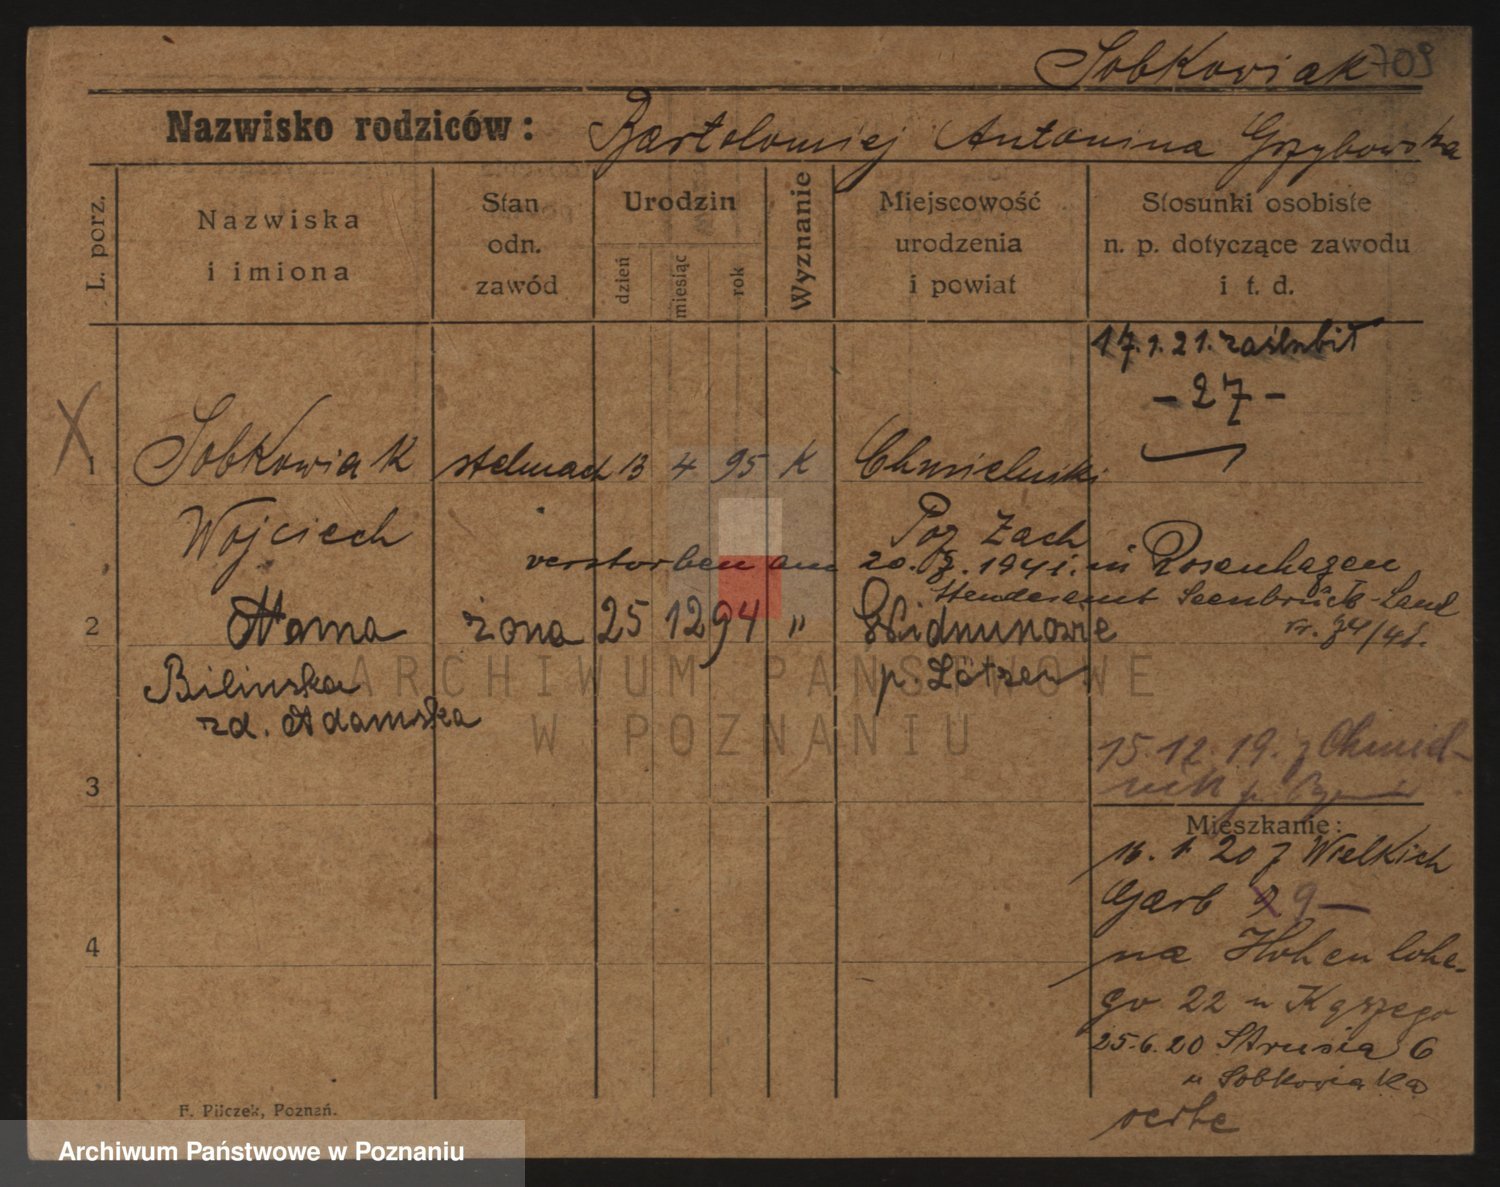 Sobkowiak 709
Nazwisko rodziców: Bartolomiej Antonina Grzybowska
L. porz.
Nazwiska i imiona
Stan odn. zawód
Urodzin
dzień miesiąc rok
Wyznanie
Miejscowość urodzenia i powiat
Stosunki osobiste n. p. dotyczące zawodu i t. d.
17.1.21. zaślubił
- 27 -
X
1 Sobkowiak stelmach 13 4 95 K Chmielniki
Wojciech Poz Zach
verstorben am 20.8.1941. in Rosenhagen
Standesamt Seenbrück-Land
nr. 34/41.
2 Anna żona 25 12 94 " Widminowie
Bilinska p. Lötzen
zd. Adamska
15 12. 19. z Chmiel-
nik p.
3
Mieszkanie:
13. 1. 20 z Wielkich
Garb 9 —
4
na Hohenlohe-
go 22 u
25.6.20 Strusia 6
u Sobkowiaka
verte
F. Pilczek, Poznań.
ARCHIWUM PAŃSTWOWE
W POZNANIU
Archiwum Państwowe w Poznaniu